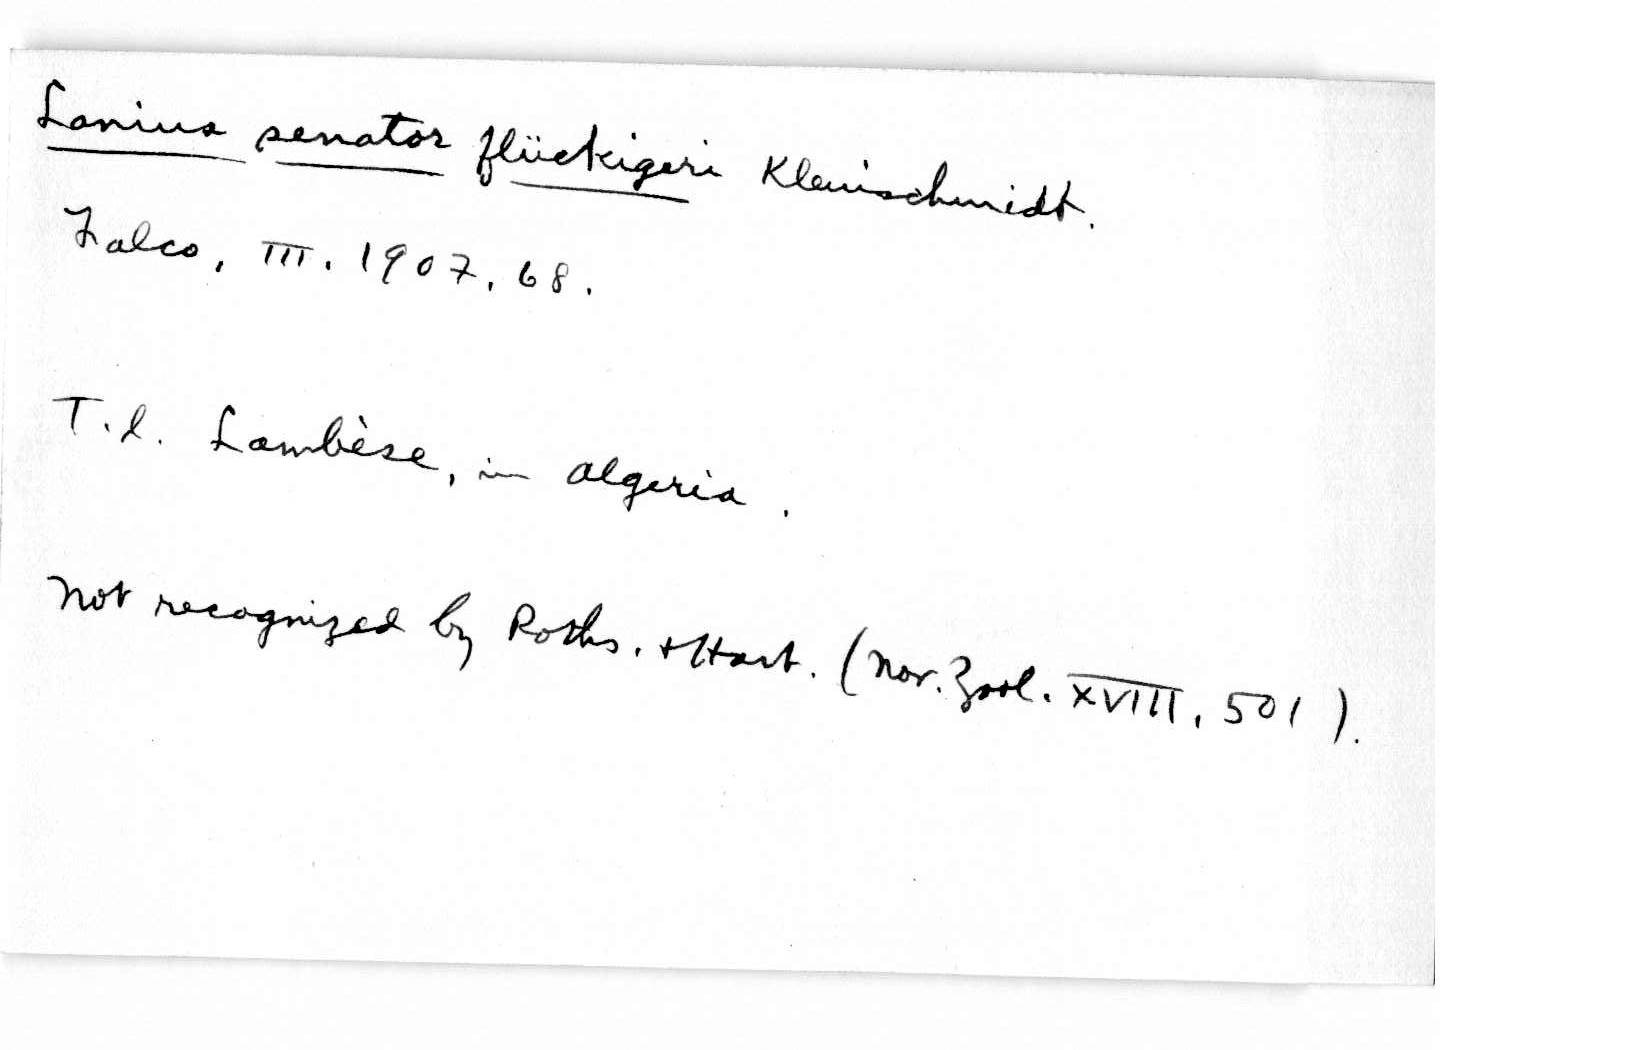 Lanius senator flückigeri Kleinschmidt.
Falco, III. 1907, 68.
T.l. Lambèse, in Algeria.
Not recognized by Roths. + Hart. (Nov. Zool. XVIII, 501).